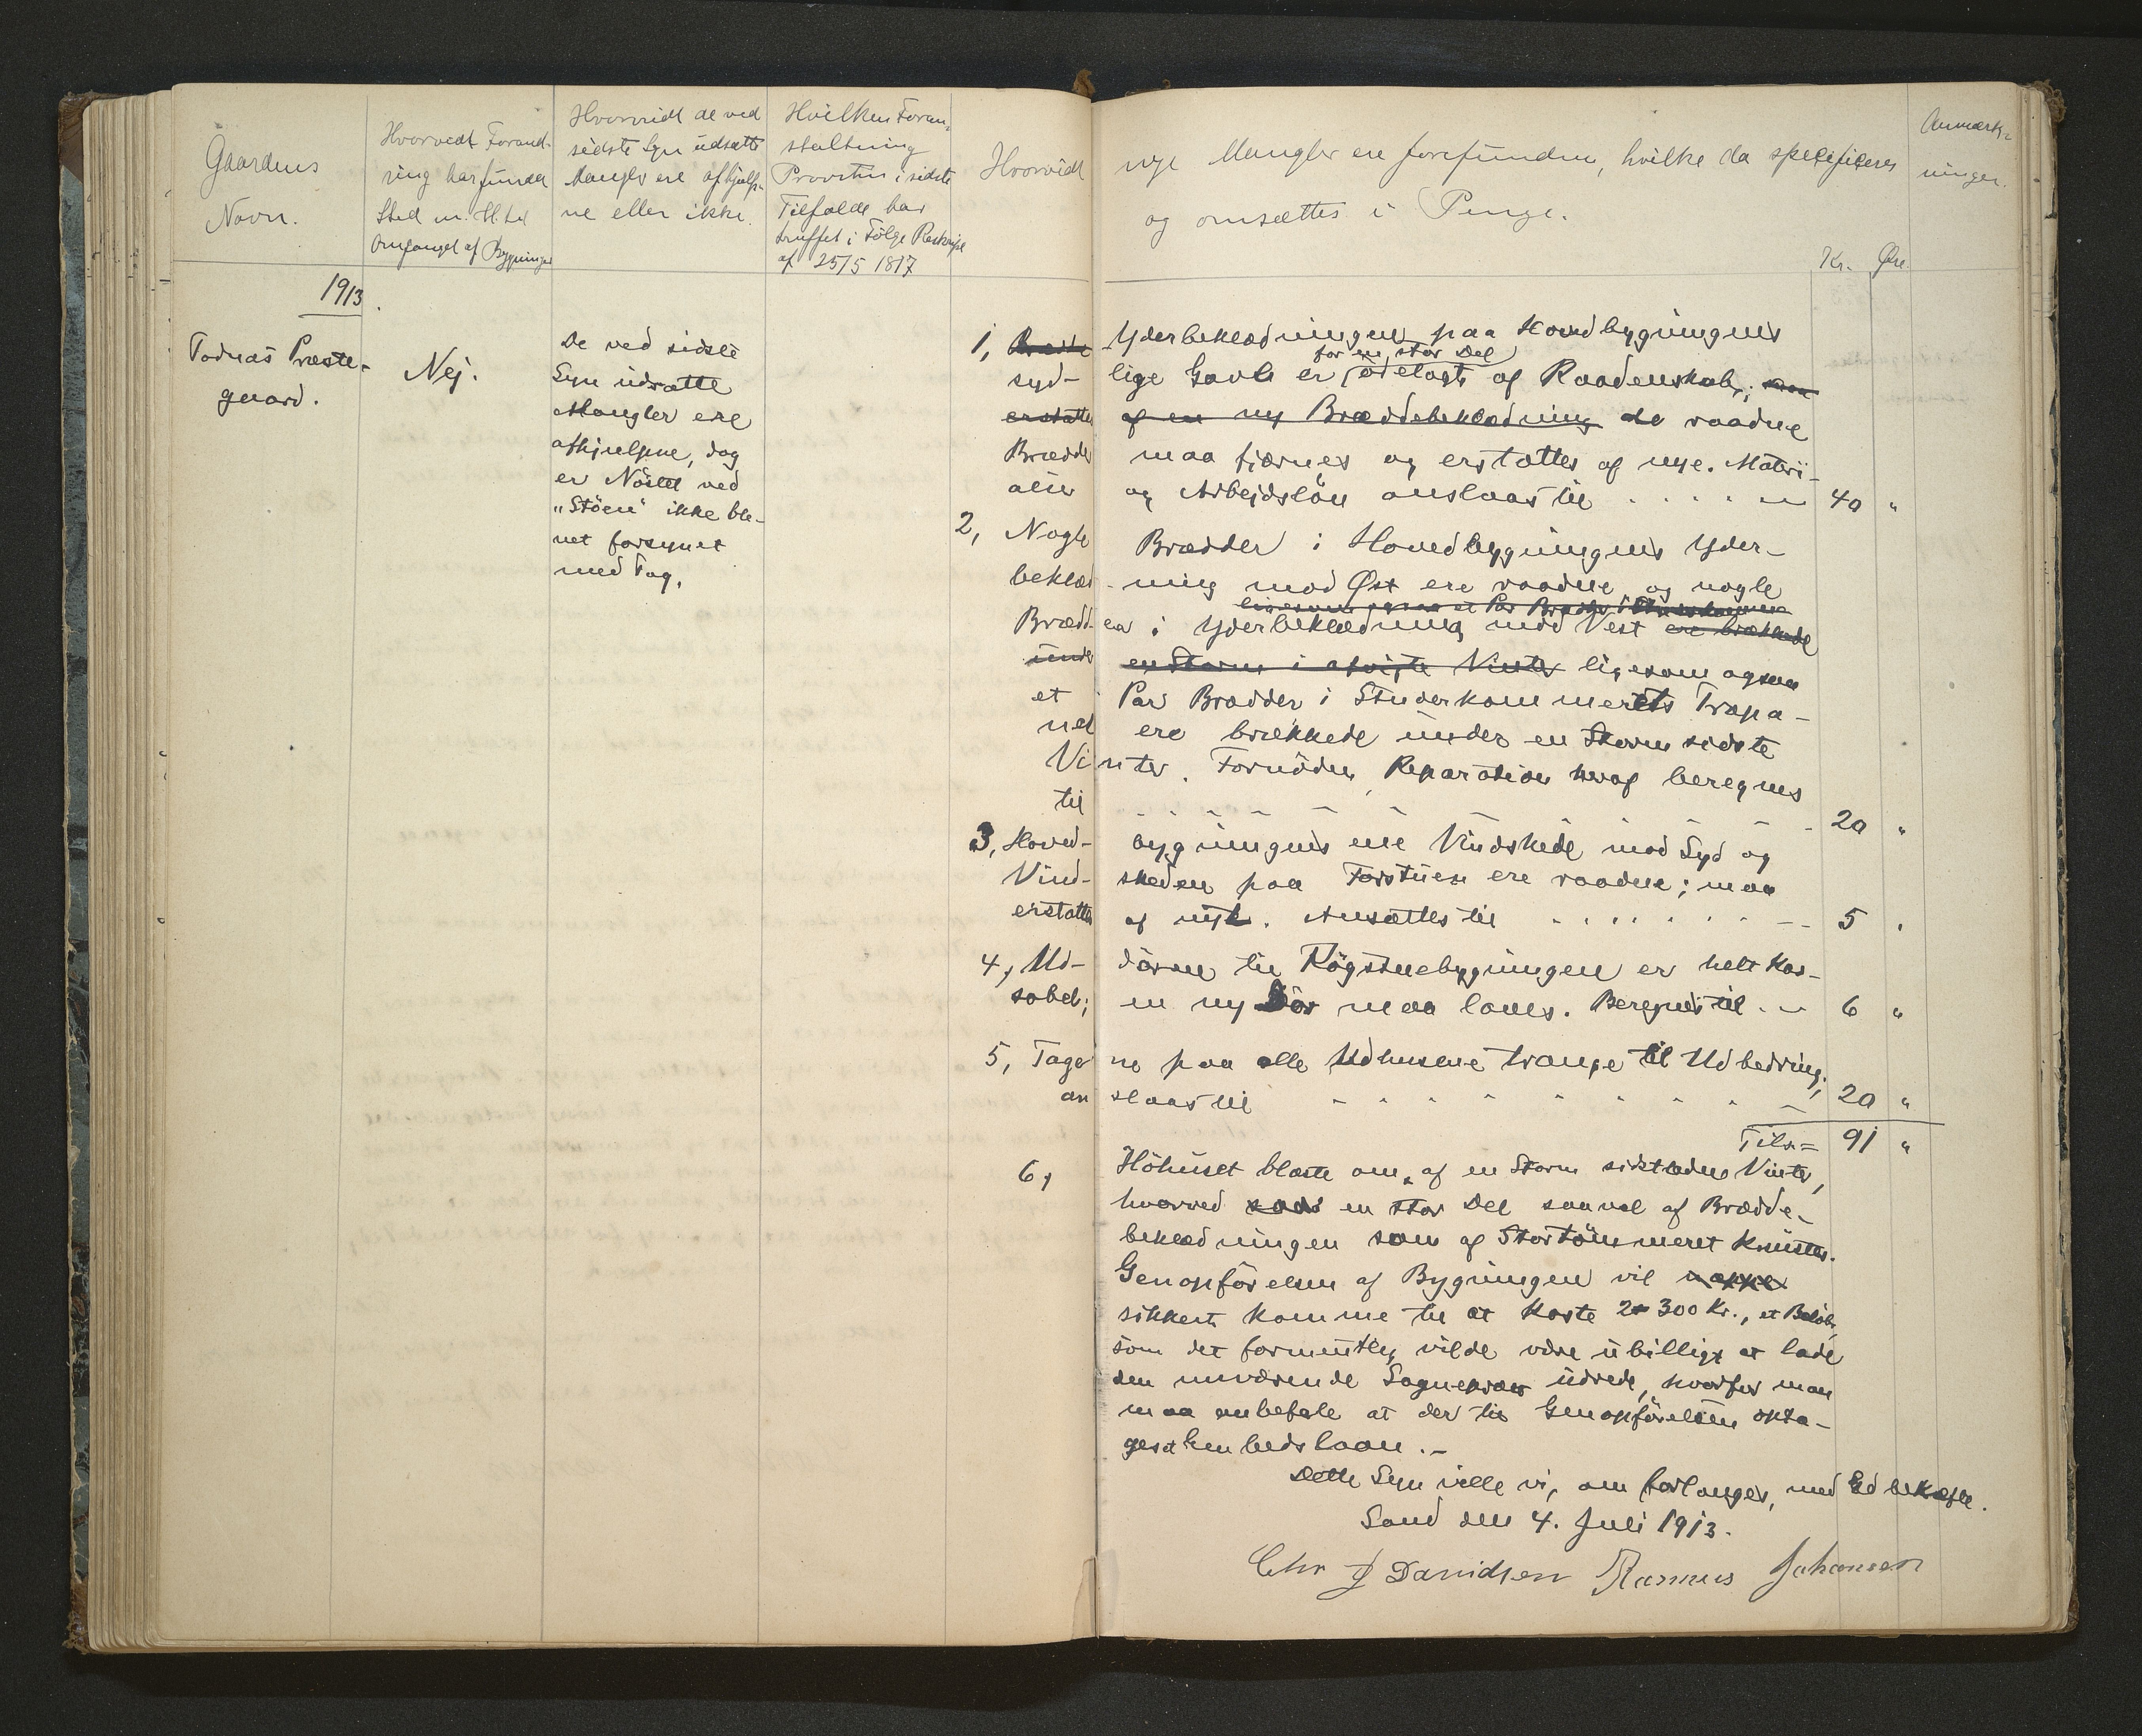 Gaardens
Navn.
Hvorvidt Forand-
ring har funded
Sted m. H. til
Omfanget af Bygninger
Hvorvidt de ved
sidste Syn udsatte
Mangler ere afhjulp-
ne eller ikke.
Hvilken Foran-
staltning
Provsten i sidste
Tilfælde har
truffet i Følge Reskript
af 25/5 1817
Hvorvidt nye Mangler ere forefundne, hvilke da specificeres
og omsættes i Penge.
Kr. Øre.
Anmærk-
ninger.
1913.
Todnæs Præste-
gaard.
Nej.
De ved sidste
Syn udsatte
Mangler ere
afhjulpne, dog
er Nøstet ved
"Støen" ikke ble-
vet forsynet
med Tag.
1, Brædde Yderbeklædningen paa Hovedbygningens
for en stor Del
syd- lige Gavl er ødelagt af Raaddenskab;
erstattes af en ny Bræddebeklædning de raadne
Brædder maa fjærnes og erstattes af nye. Materi-
aler og Arbejdsløn anslaaes til . . . . . 40 "
2, Nogle Brædder i Hovedbygningens Yder-
beklæd- ning mod Øst ere raadne og nogle
ligesom ogsaa et Par Brædder i
Brædd- er i Yderbeklædning mod Vest ere brækkede
under en Storm i afvigte Vinter ligesom ogsaa
et Par Brædder i Studerkammerets Trapa-
nel ere brækkede under en Storm sidste
Vinter. Fornøden Reparation heraf beregnes
til - - - - - - - 20 "
3, Hoved- bygningens ene Vindskede mod Syd og
Vind- skeden paa Forstuen ere raadne; maa
erstattes af nyt. Ansættes til . . . . . . . - - 5 "
4, Ud- døren til Røgstuebygningen er helt kas-
sabel; en ny Dør maa laves. Beregnes til . - 6 "
5, Tage ne paa alle Udhusene trange til Udbedring;
an slaaes til - - - - - - - - - 20 "
Tils. = 91 "
6, Höhuset blæste om af en Storm sidstledne Vinter,
hvorved en stor Del saavel af Brædde-
beklædningen som af Stortømmeret knustes.
Genopførelsen af Bygningen vil næppe
sikkert komme til at koste 2 à 300 Kr., et Beløb,
som det formentlig vilde være ubilligt at lade
den nuværende Sognepræst udrede, hvorfor man
maa anbefale at der til Genopførelsen opta-
ges et Embedslaan. -
Dette Syn ville vi, om forlanges, med Ed bekræfte.
Sand den 4. Juli 1913.
Chr J Davidsen Rasmus Johansen